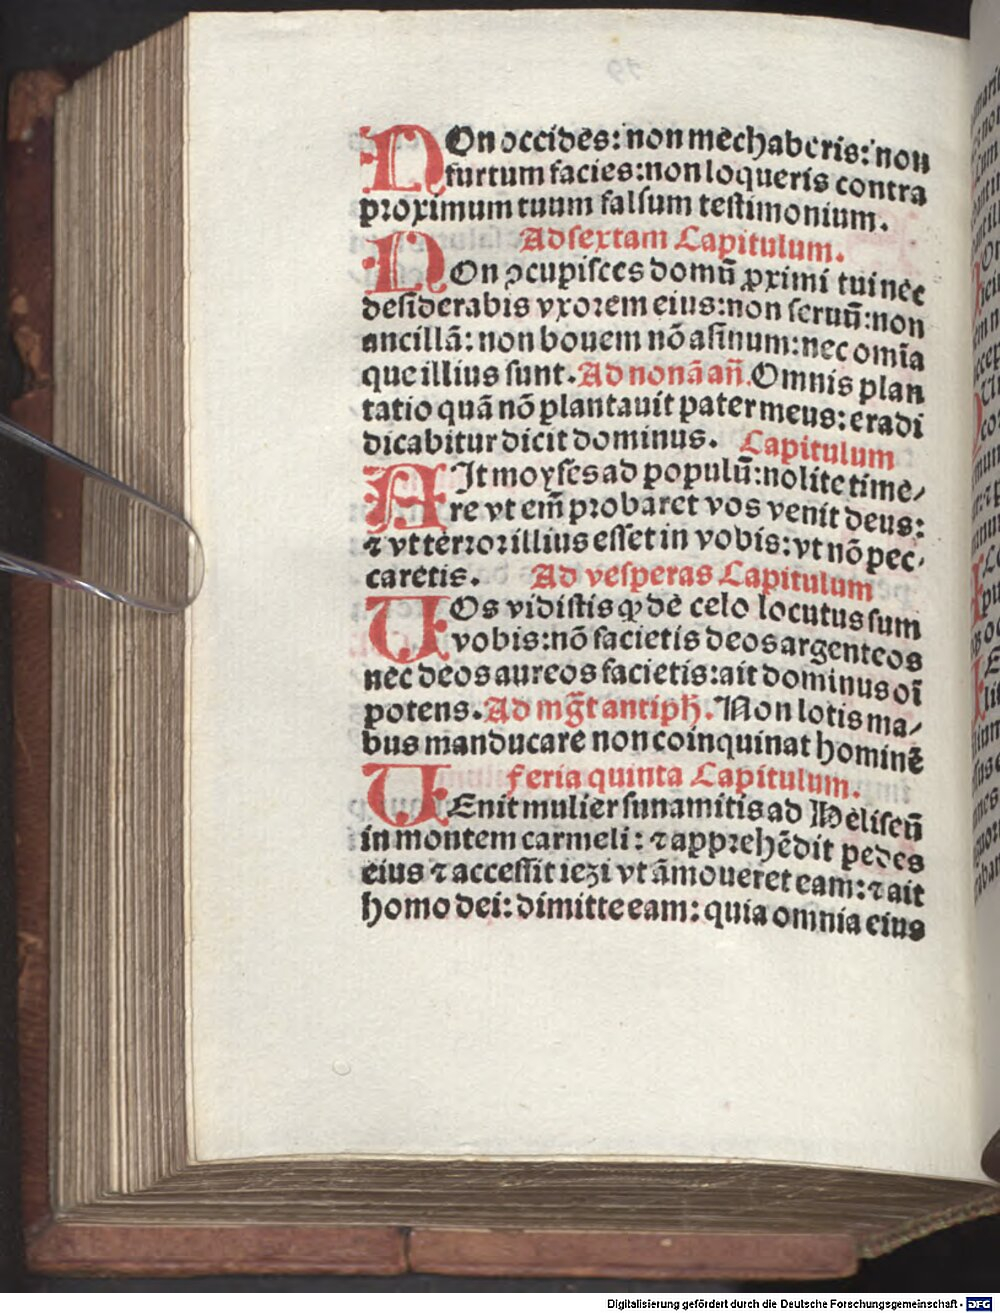 NOn occides: non mechaberis: non
furtum facies: non loqueris contra
proximum tuum falsum testimonium.
Ad sextam Capitulum.
NOn ꝯcupisces domū ꝓximi tui nec
desiderabis vxorem eius: non seruū: non
ancillā: non bouem nō asinum: nec om̄ia
que illius sunt. Ad nonā añ. Omnis plan
tatio quā nō plantauit pater meus: eradi
dicabitur dicit dominus. Capitulum
AIt moyses ad populū: nolite time⸗
re vt em̄ probaret vos venit deus:
⁊ vt terror illius esset in vobis: vt nō pec⸗
caretis. Ad vesperas Capitulum
UOs vidistis ꝙ de celo locutus sum
vobis: nō facietis deos argenteos
nec deos aureos facietis: ait dominus oī
potens. Ad mḡt antiph. Non lotis ma⸗
bus manducare non coinquinat hominē
Feria quinta Capitulum.
UEnit mulier sunamitis ad Heliseū
in montem carmeli: ⁊ apprehēdit pedes
eius ⁊ accessit iezi vt āmoueret eam: ⁊ ait
homo dei: dimitte eam: quia omnia eius
Digitalisierung gefördert durch die Deutsche Forschungsgemeinschaft - DFG